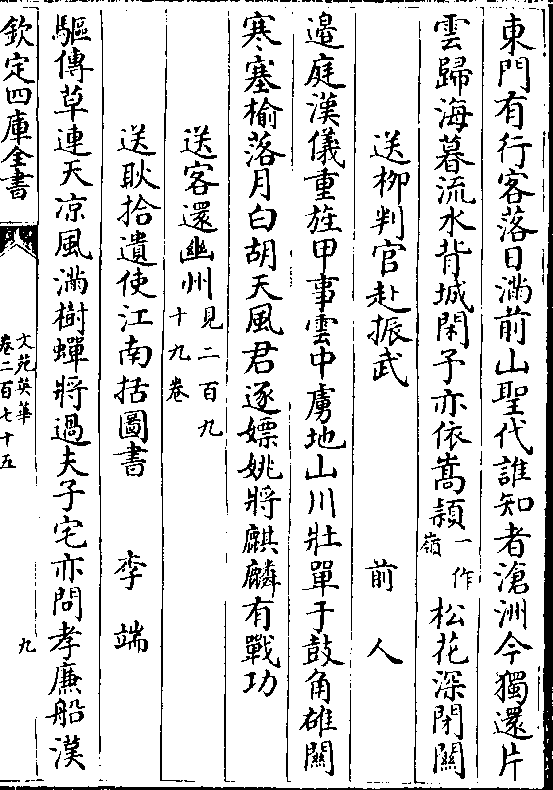 東門有行客落日滿前山聖代誰知者滄洲今獨還片
雲歸海暮流水背城閑予亦依嵩潁一作嶺松花深閉關
送柳判官赴振武　前人
邉庭漢儀重旌甲事雲中虜地山川壯單于鼓角雄關
寒塞榆落月白胡天風君逐嫖姚將麒麟有戰功
送客還幽州見二百九十九卷
送耿拾遺使江南括圖書　李端
驅傳草連天凉風滿樹蟬將過夫子宅亦問孝廉船漢
欽定四庫全書
文苑英華
卷二百七十五
九